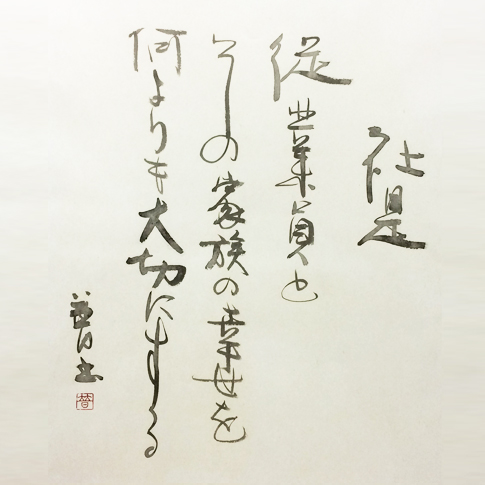 社是
従業員と
その家族の幸せを
何よりも大切にする